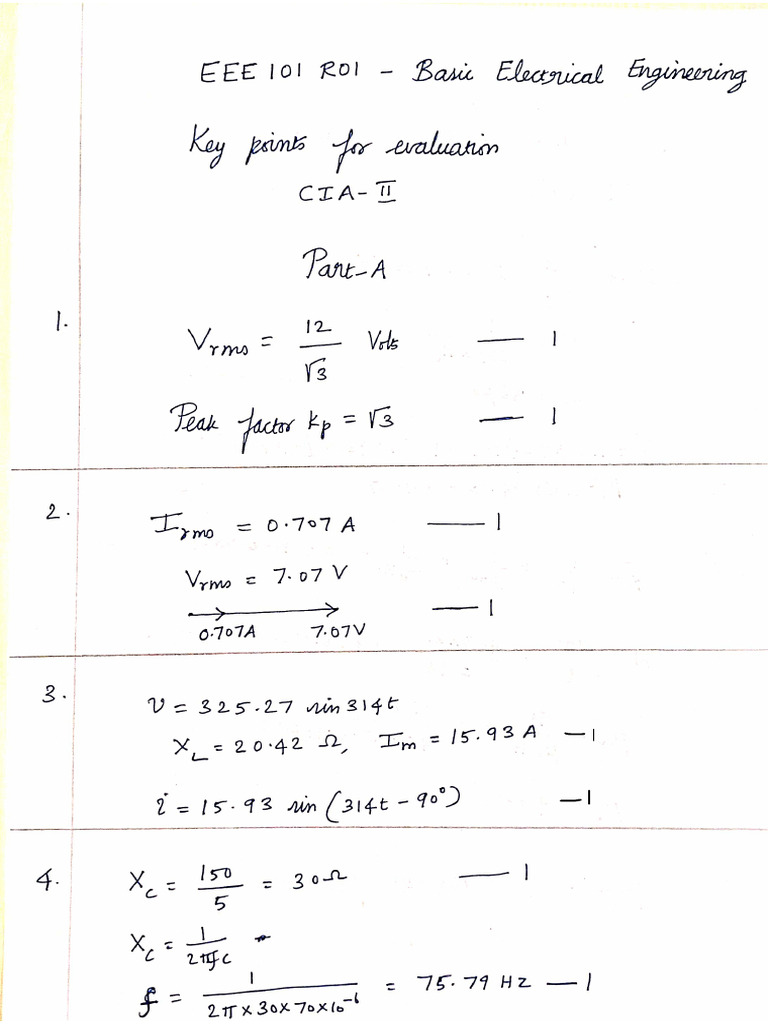 EEE 101 R01 - Basic Electrical Engineering
Key points for evaluation
CIA-II
Part-A
1.
Vrms = 12/√3 Volts — 1
Peak factor kp = √3 — 1
2.
Irms = 0.707 A — 1
Vrms = 7.07 V
— 1
0.707A 7.07V
3.
v = 325.27 sin 314t
XL = 20.42 Ω, Im = 15.93 A — 1
i = 15.93 sin (314t - 90°) — 1
4.
Xc = 150/5 = 30Ω — 1
Xc = 1/2πfc
f = 1/2π×30×70×10⁻⁶ = 75.79 HZ — 1